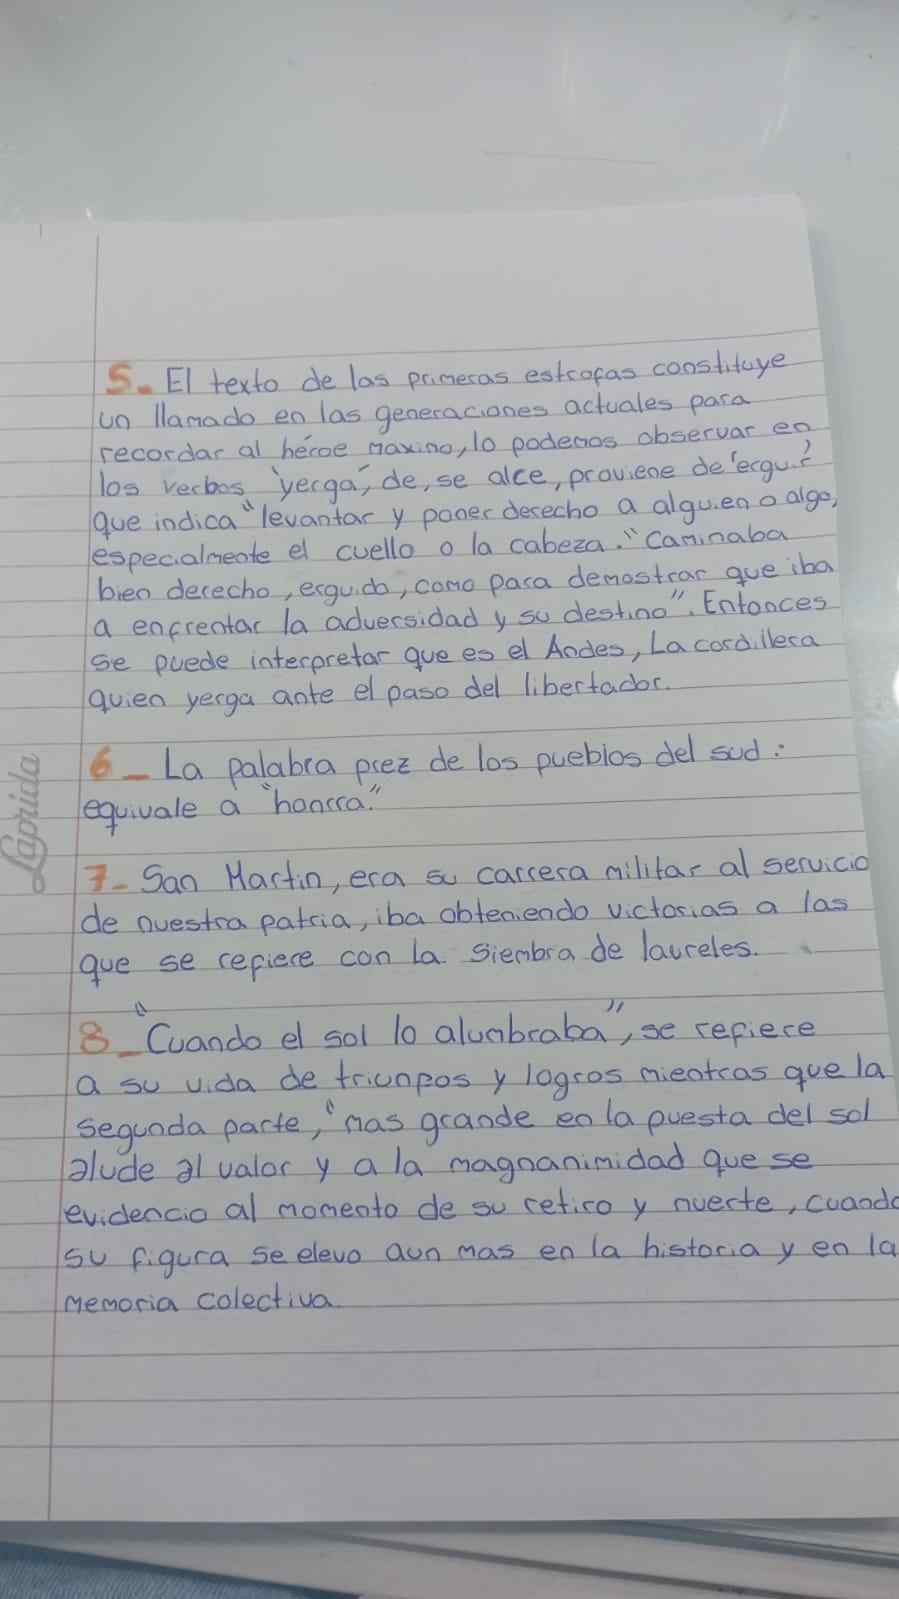 5. El texto de las primeras estrofas constituye
un llamado en las generaciones actuales para
recordar al héroe maximo, lo podemos observar en
los verbos "yerga", de, se alce, proviene de "erguir"
que indica "levantar y poner derecho a alguien o algo,
especialmente el cuello o la cabeza." Caminaba
bien derecho, erguido, como para demostrar que iba
a enfrentar la adversidad y su destino". Entonces
se puede interpretar que es el Andes, La cordillera
quien yerga ante el paso del libertador.
6_ La palabra prez de los pueblos del sud:
equivale a "honrra."
7- San Martin, era su carrera militar al servicio
de nuestra patria, iba obteniendo victorias a las
que se refiere con la siembra de laureles.
8_ "Cuando el sol lo alumbraba", se refiere
a su vida de triunfos y logros mientras que la
segunda parte, "mas grande en la puesta del sol
alude al valor y a la magnanimidad que se
evidencio al momento de su retiro y muerte, cuando
su figura se elevo aun mas en la historia y en la
memoria colectiva.
Laprida